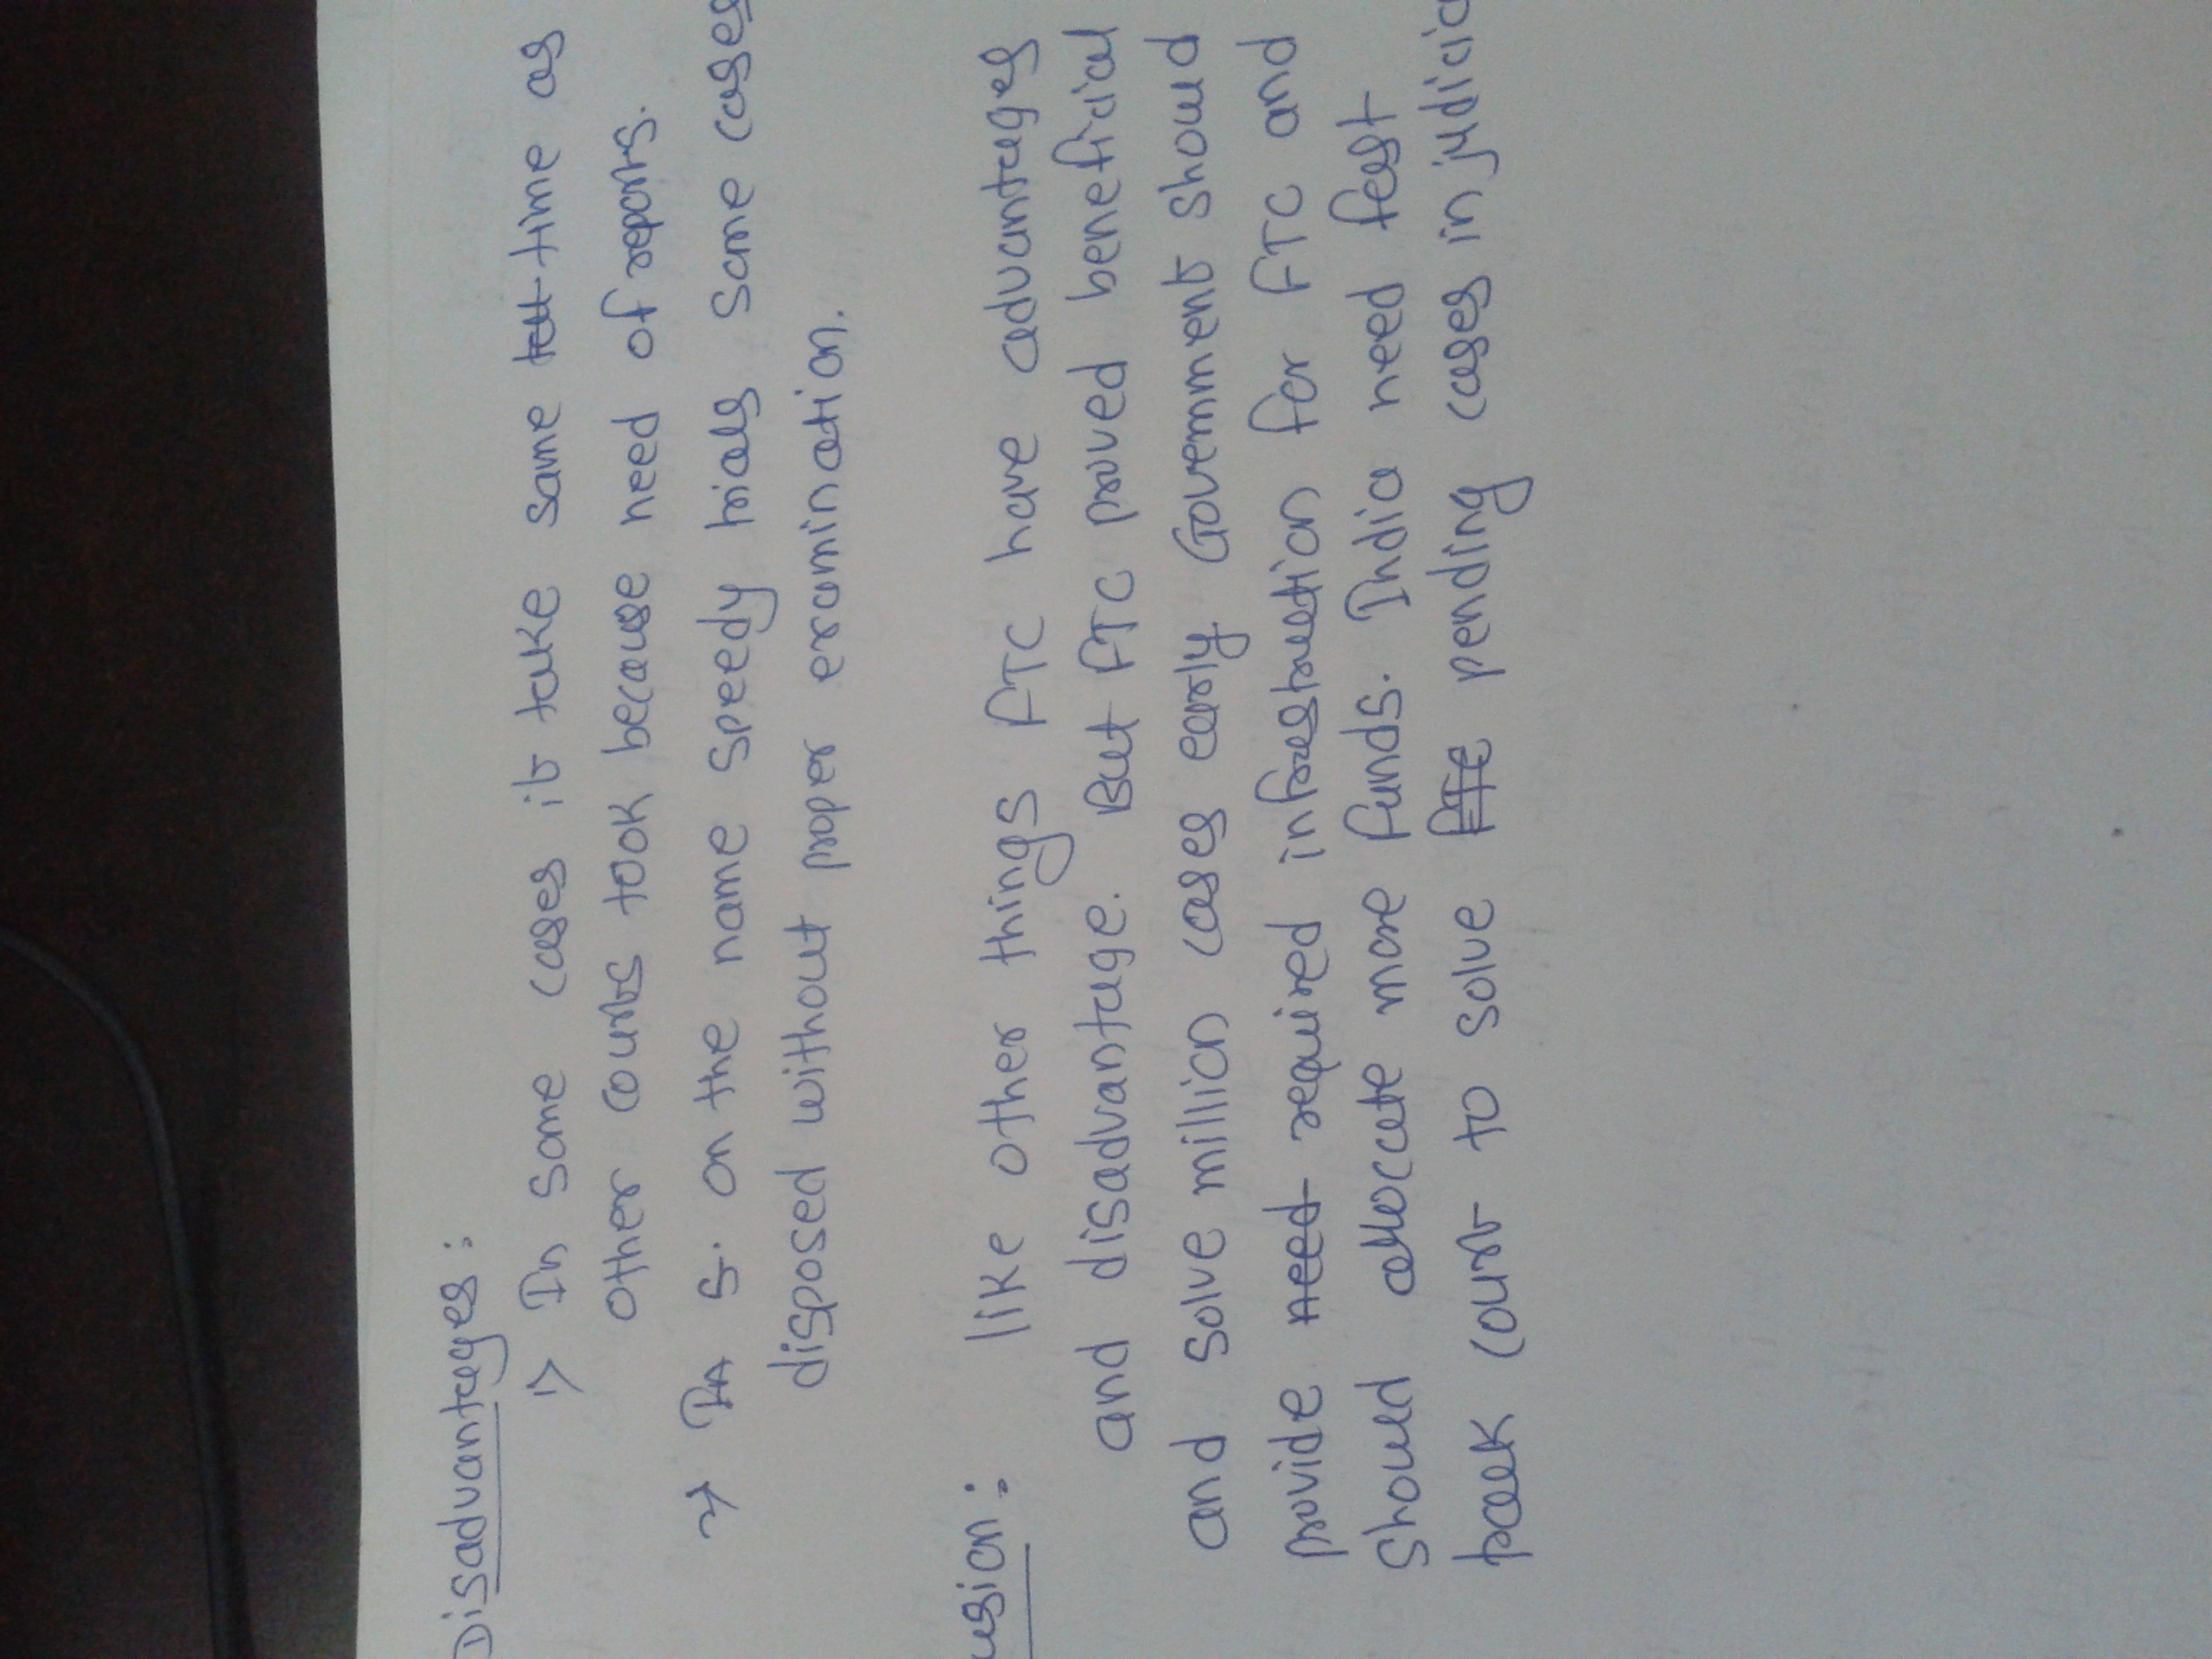 Disadvantages:
1> In some cases it take same time as
other courts took because need of reports.
→ In S. on the name speedy trials same cases
disposed without proper examination.
usion: like other things FTC have advantages
and disadvantage. But FTC proved beneficial
and solve million cases early Government should
provide need required infrastruction for FTC and
should allocate more funds. India need fast
track court to solve pending cases in judicia